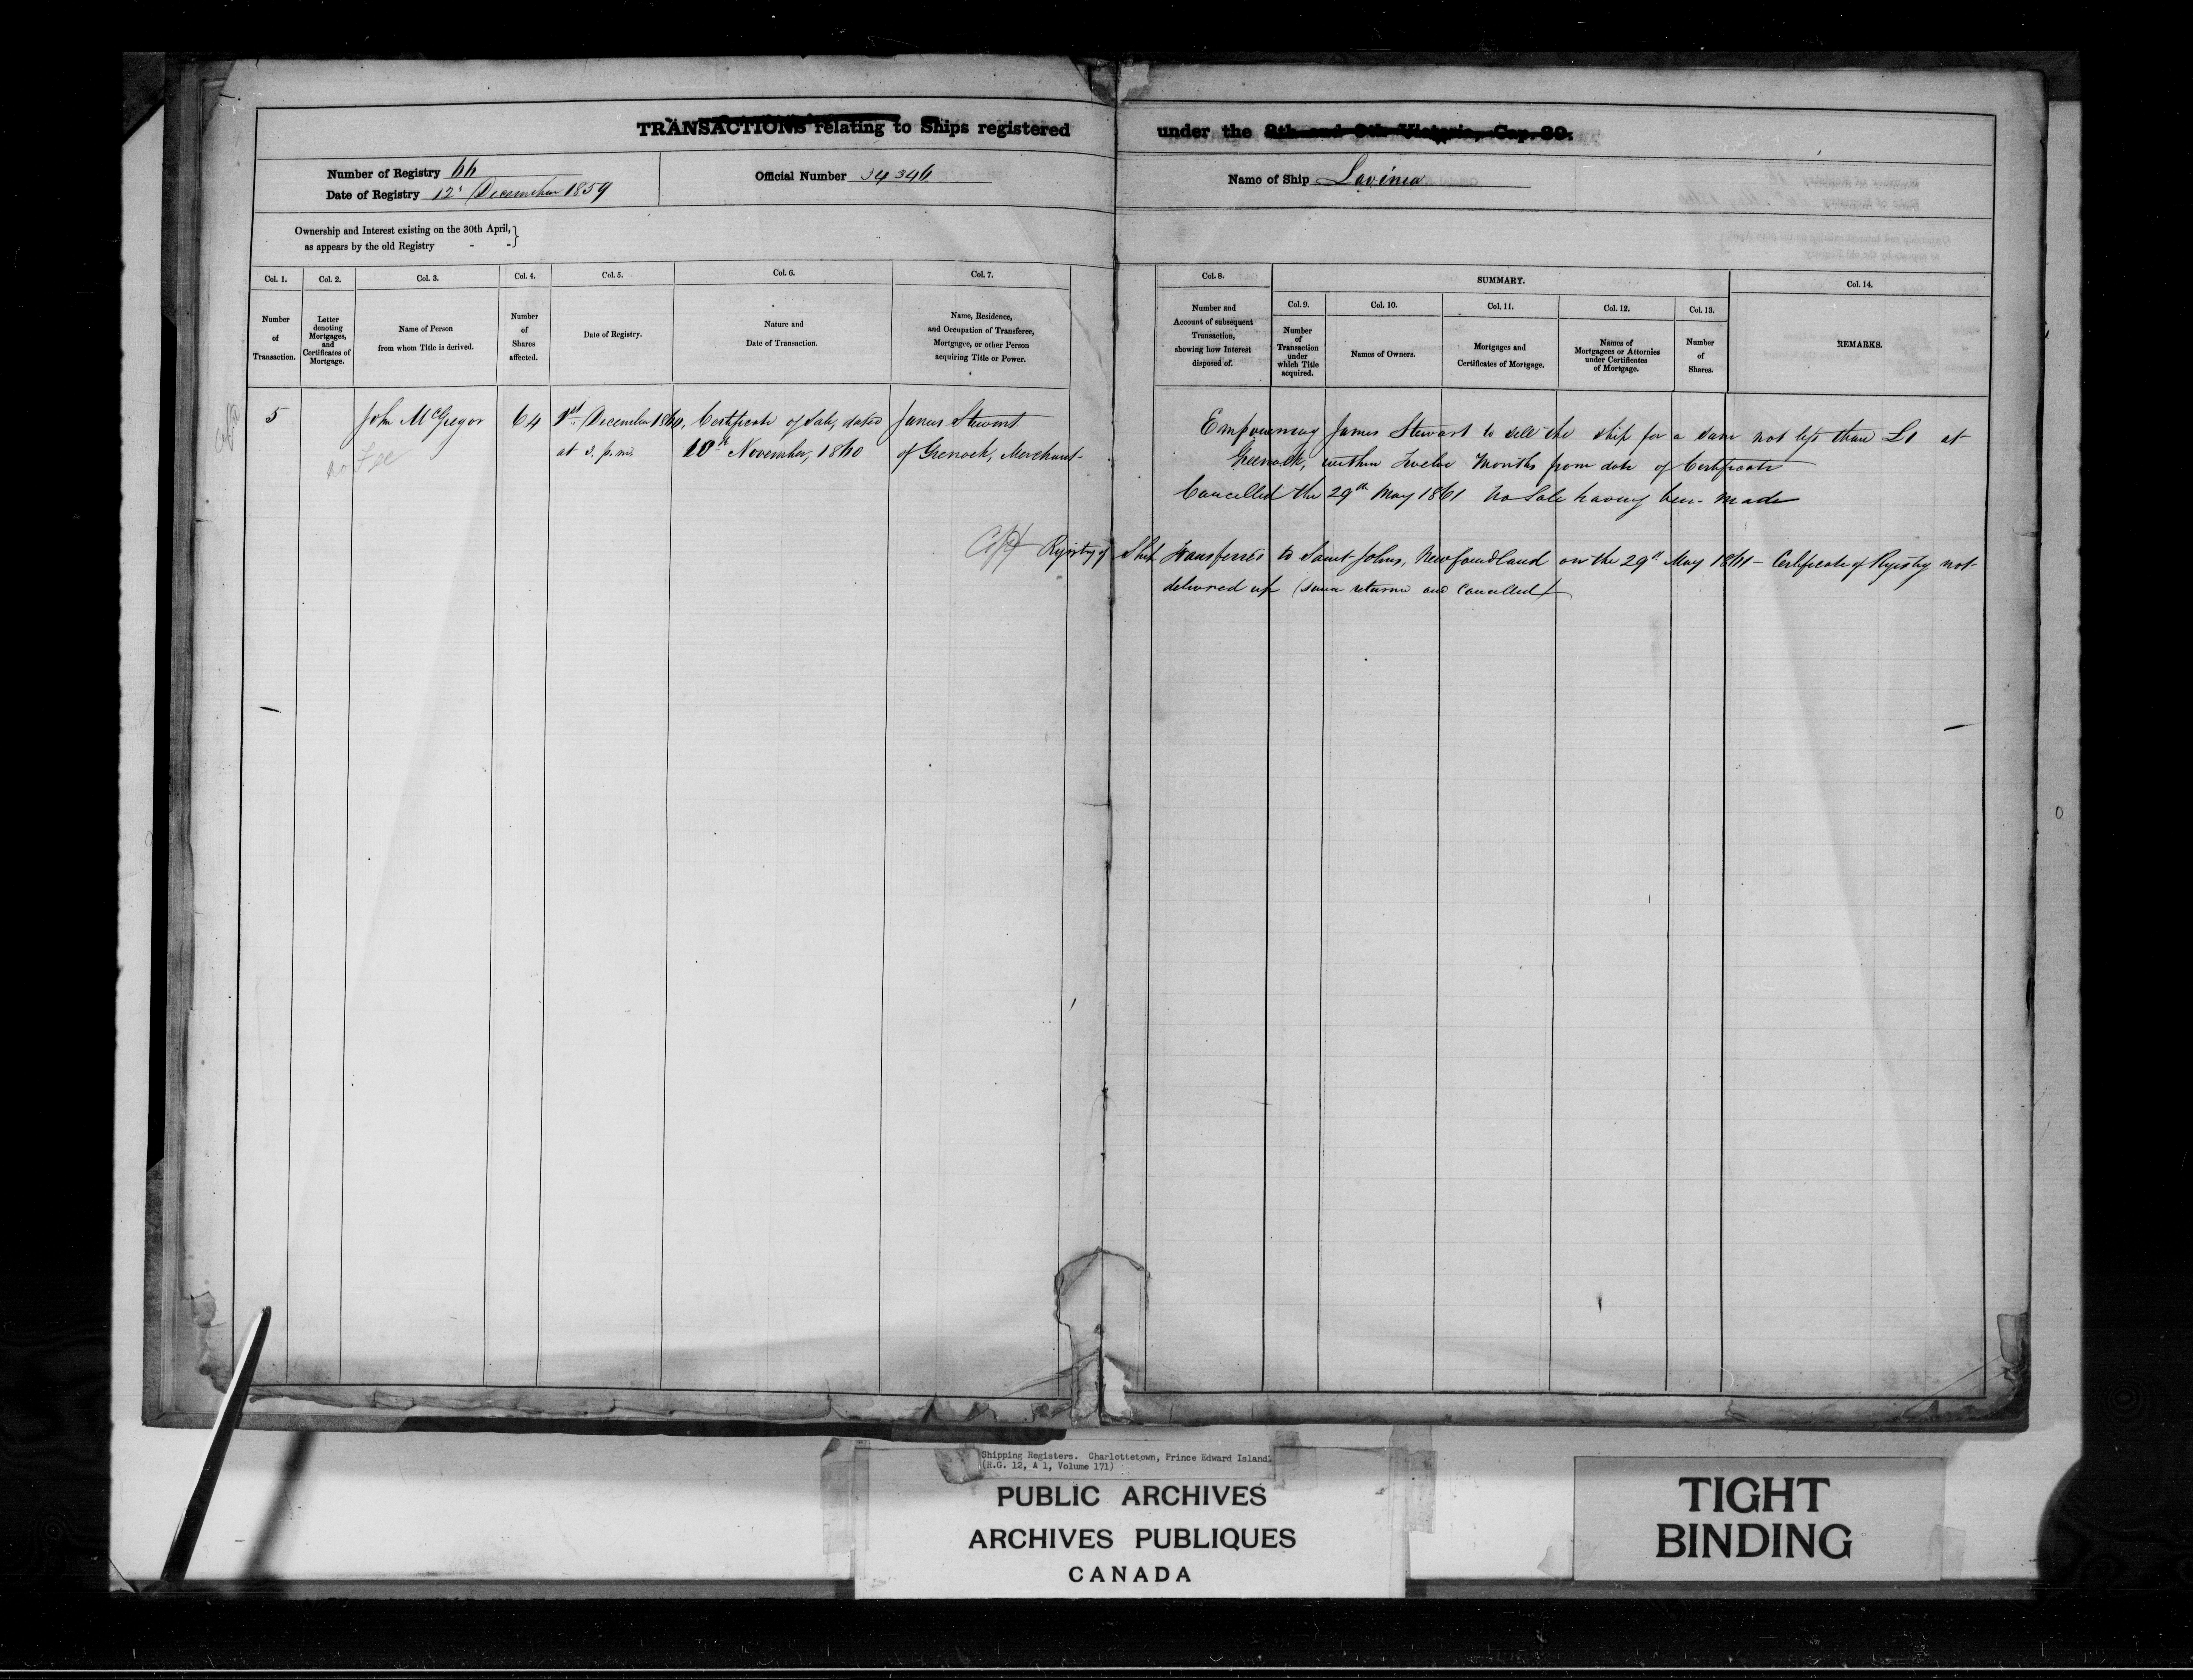 TRANSACTIONS relating to Ships registered under the 8th and 9th Victoria, Cap. 89.
Number of Registry 66
Date of Registry 12 December 1859
Official Number 34346
Name of Ship Lavinia
Ownership and Interest existing on the 30th April, }
as appears by the old Registry - - }
Col. 1. Number of Transaction.
Col. 2. Letter denoting Mortgages, and Certificates of Mortgage.
Col. 3. Name of Person from whom Title is derived.
Col. 4. Number of Shares affected.
Col. 5. Date of Registry.
Col. 6. Nature and Date of Transaction.
Col. 7. Name, Residence, and Occupation of Transferee, Mortgagee, or other Person acquiring Title or Power.
Col. 8. Number and Account of subsequent Transaction, showing how Interest disposed of.
SUMMARY.
Col. 9. Number of Transaction under which Title acquired.
Col. 10. Names of Owners.
Col. 11. Mortgages and Certificates of Mortgage.
Col. 12. Names of Mortgagees or Attornies under Certificates of Mortgage.
Col. 13. Number of Shares.
Col. 14. REMARKS.
5 John McGregor 64 1st December 1860, Certificate of Sale, dated James Stewart
at 3. p.m. 10th November, 1860 of Greenock, Merchant
no Fee
Empowering James Stewart to sell the ship for a sum not less than £1 at
Greenock, within Twelve Months from date of Certificate
Cancelled the 29th May 1861 no Sale having been made
Registry of Ship Transferred to Saint Johns, Newfoundland on the 29th May 1861 - Certificate of Registry not
delivered up (since returned and Cancelled)
Shipping Registers. Charlottetown, Prince Edward Island.
(R.G. 12, A 1, Volume 171)
PUBLIC ARCHIVES
ARCHIVES PUBLIQUES
CANADA
TIGHT
BINDING